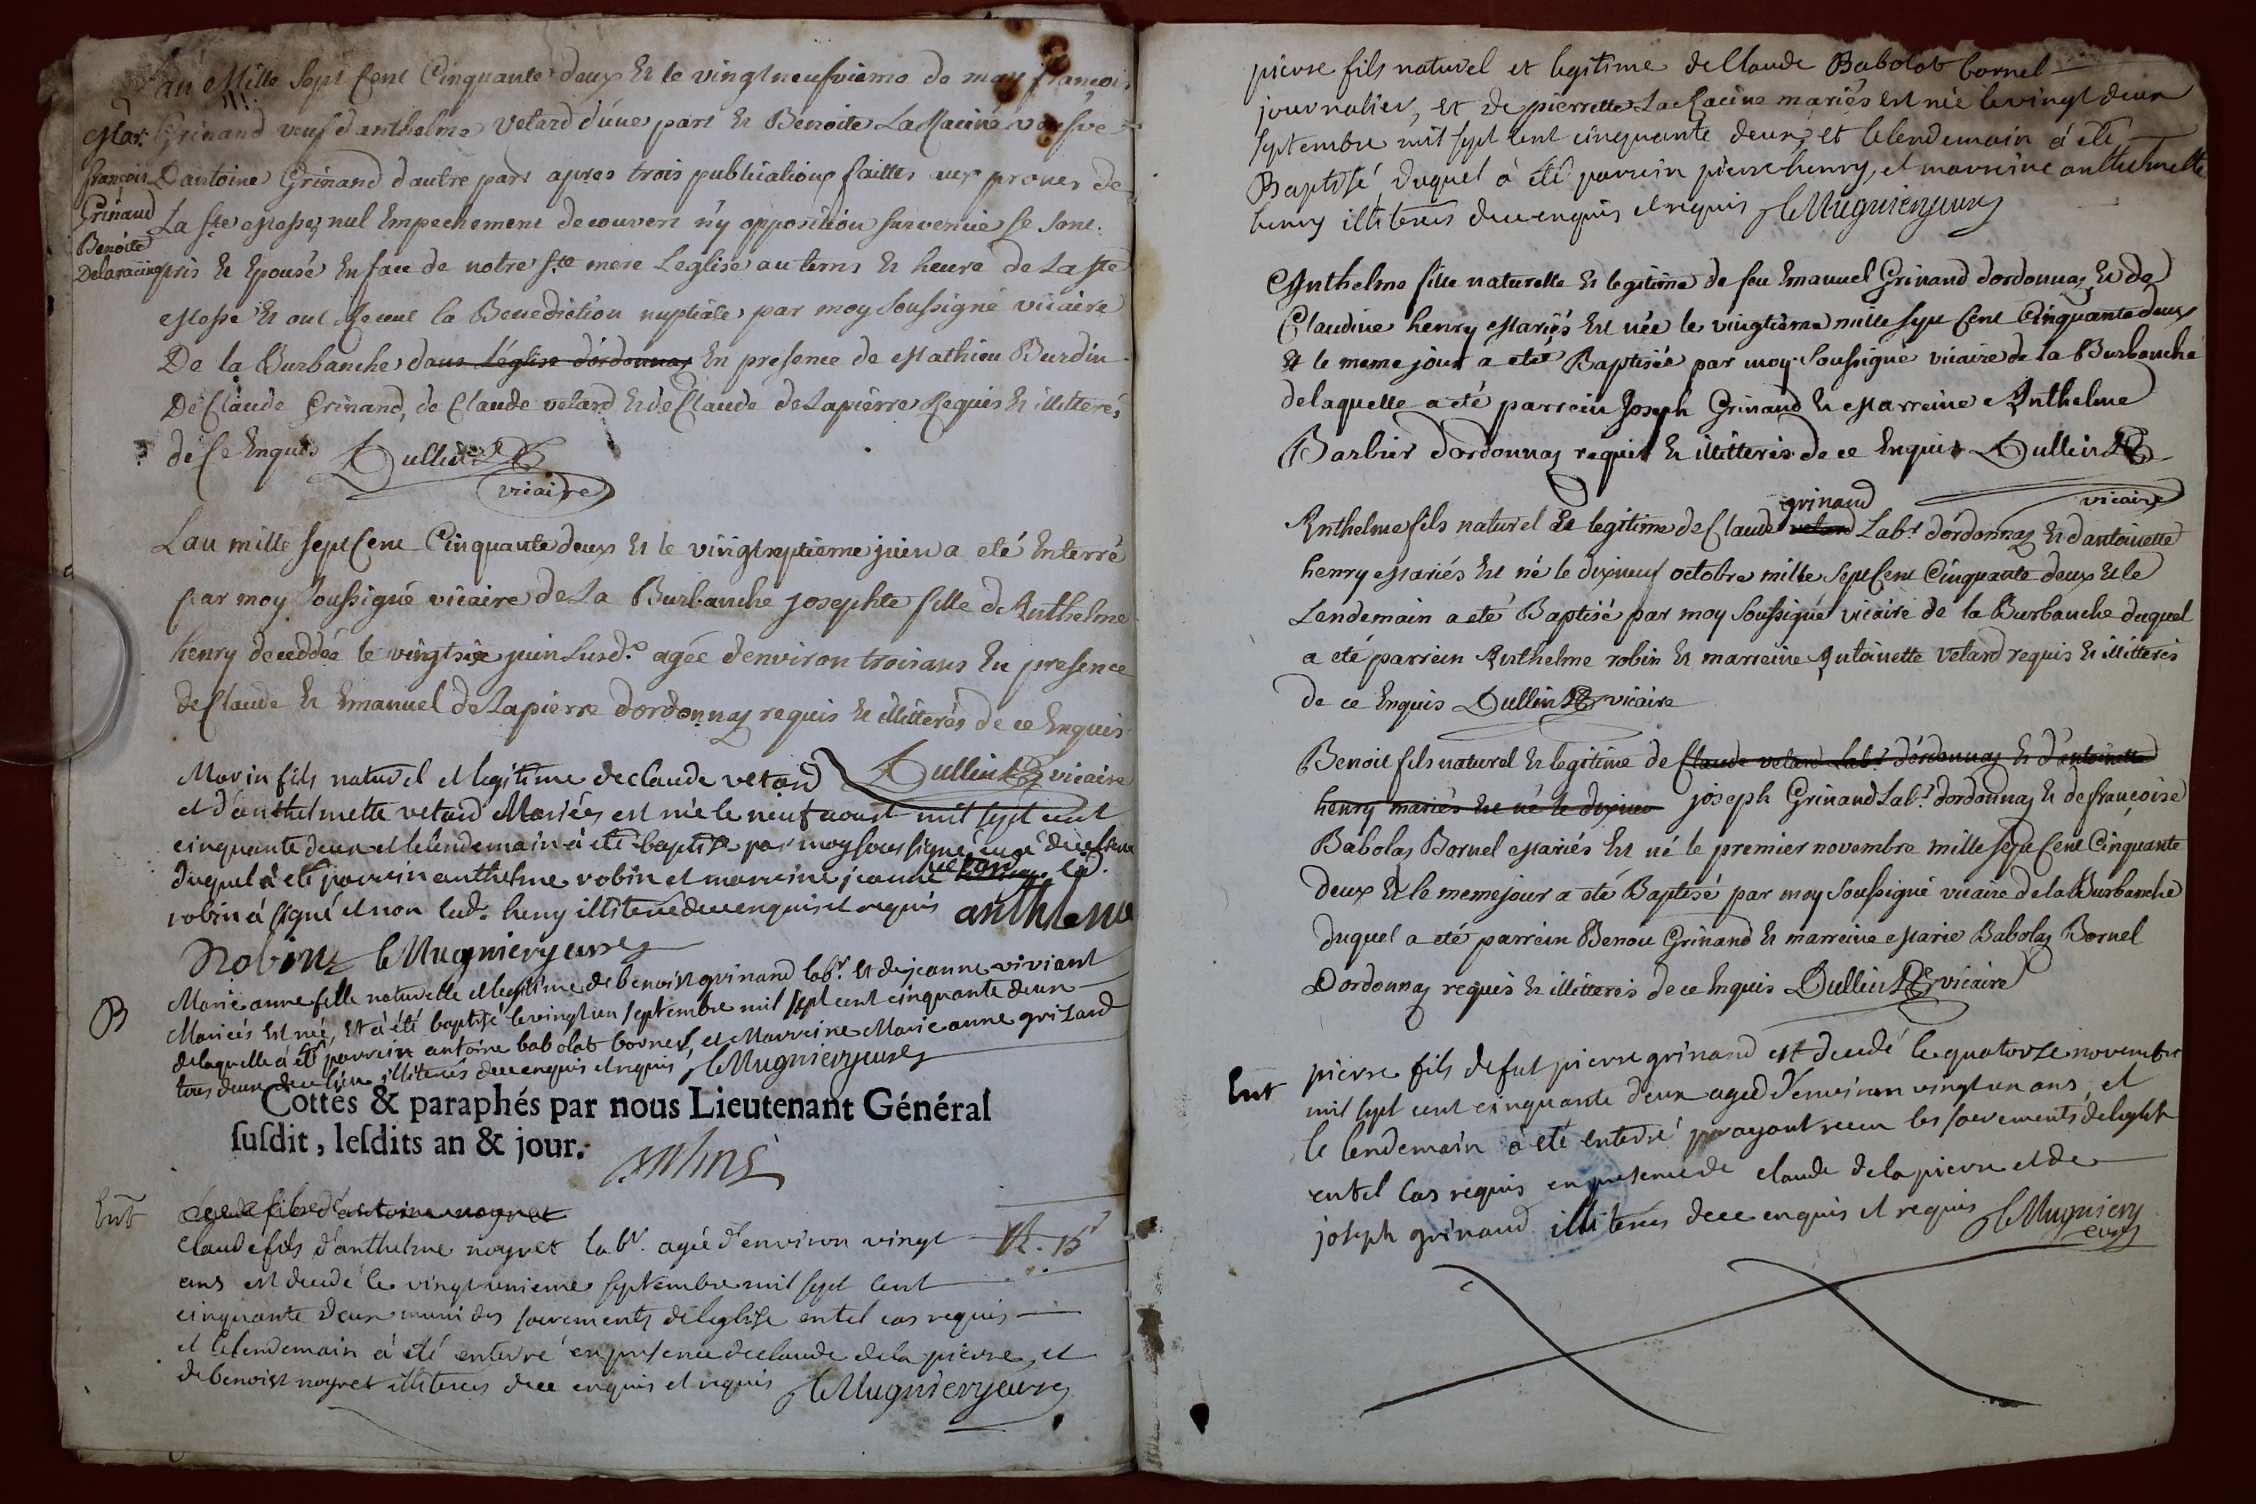 L'an Mille Sept Cent Cinquante deux Et le vingtneufvieme de may françois
Mar. Grinand veuf d'anthelme Vetard d'une part Et Benoite La Racine veufve
françois D'antoine Grinand d'autre part apres trois publications faittes aux prones de
Grinand La ste Messe, nul Empechement decouvert n'y opposition survenue se sont
Benoite
Delaracine pris Et Epousé En face de notre Ste mere L'eglise au tems Et heure de La ste
Messe Et ont Receut la Benediction nuptiale par moy Soussigné vicaire
De la Burbanche dans l'église d'ordonnas En presence de Mathieu Burdin
De Claude Grinand, de Claude vetard Et de Claude de Lapierre Requis Et illitterés
de Ce Enquis Dullin
vicaire
L'an mille Sept Cent Cinquante deux Et le vingtseptieme juin a eté Enterré
par moy Soussigné vicaire de La Burbanche josephte fille de Anthelme
henry deceddée le vingtsix juin Susd. agée d'environ trois ans En presence
de Claude Et Emanuel de Lapierre d'ordonnas requis Et illitterés de ce Enquis
Dullin vicaire
Marin fils naturel et legitime de claude vetard
et d'anthelmette vetard Mariés est née le neuf aoust mil sept cent
cinquante deux et le lendemain à été baptisé par moy soussigné curé
duquel à été parrein anthelme robin et marreine jeanne led.
robin à signé et non lad. heny illiterée de ce enquis et requis anthleme
Robin leMugnier
B Marie anne fille naturelle et legitime de benoist grinand labr. et de jeanne viviant
Mariés Est née, Et à été baptisé le vingt un septembre mil sept cent cinquante deux
delaquelle à été parrein antoine babolat bornel, et Marreine Marie anne grisard
tous deux illiterés de ce enquis et requis leMugnier
Cottés & paraphés par nous Lieutenant Général
ſuſdit, leſdits an & jour.
Ent claude fils d'antoine noyret
claude fils d'anthelme noyret labr. agée d'environ vingt
ans est decedé le vingt unieme septembre mil sept cent
cinquante deux muni des sacrements de l'eglise en tel cas requis
et le lendemain à été enterré en presence de claude de la pierre, et
de benoist noyret illiterés de ce enquis et requis leMugnier
pierre fils naturel et legitime de Claude Babolat bornel
journalier, et de pierrette La Racine mariés Est née le vingt deux
septembre mil sept cent cinquante deux, et le lendemain à été
Baptisé, duquel à été parrein pierre henry, et marreine anthelmette
henry illiterés de ce enquis et requis leMugnier
Anthelme fille naturelle Et legitime de feu Emanuel Grinand d'ordonnas Et de
Claudine henry Mariés Est née le vingtième mille Sept Cent Cinquante deux
Et le meme jour a eté Baptisée par moy Soussigné vicaire de la Burbanche
de laquelle a eté parrein Joseph Grinand Et Marreine Anthelme
Barbier d'ordonnas requis Et illitterés de ce Enquis Dullin
vicaire
grinand
Anthelme fils naturel Et legitime de Claude vetard Labr. d'ordonnas Et d'antoinette
henry Mariés Est né le dixneuf octobre mille Sept Cent Cinquante deux Et le
Lendemain a eté Baptisé par moy Soussigné vicaire de la Burbanche duquel
a eté parrein Anthelme robin Et marreine Antoinette Vetard requis Et illitterés
de ce Enquis Dullin vicaire
Benoit fils naturel Et legitime de Claude vetard Labr. d'ordonnas Et d'antoinette
henry mariés Est né le dixneu joseph Grinand Labr. d'ordonnas Et de françoise
Babolas Bornel Mariés Est né le premier novembre mille Sept Cent Cinquante
deux Et le meme jour a eté Baptisé par moy Soussigné vicaire de la Burbanche
duquel a eté parrein Benoit Grinand Et marreine Marie Babolas Bornel
D'ordonnas requis Et illitterés de ce Enquis Dullin vicaire
Ent pierre fils de fut pierre grinand est decedé le quatorze novembre
mil sept cent cinquante deux aged d'environ vingt un ans, et
le lendemain à été enterré ayant receu les sacrements de leglise
en tel cas requis en presence de claude de la pierre et de
joseph grinand illiterés de ce enquis et requis leMugnier
curé